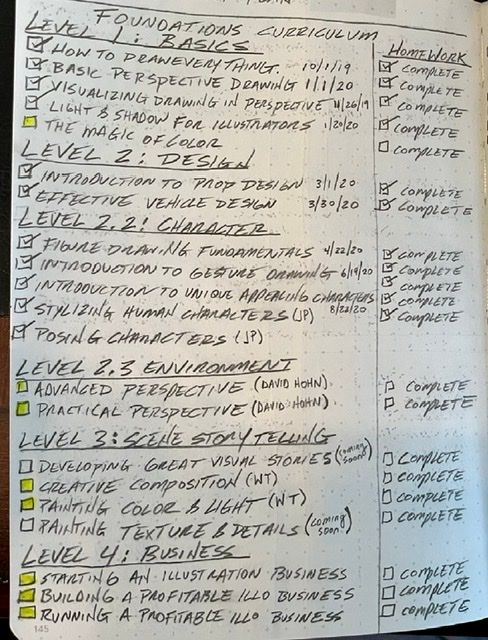 FOUNDATIONS CURRICULUM
LEVEL 1: BASICS HOMEWORK
HOW TO DRAW EVERYTHING. 10/1/19 COMPLETE
BASIC PERSPECTIVE DRAWING 1/1/20 COMPLETE
VISUALIZING DRAWING IN PERSPECTIVE 4/26/19 COMPLETE
LIGHT & SHADOW FOR ILLUSTRATORS 1/20/20 COMPLETE
THE MAGIC OF COLOR COMPLETE
LEVEL 2: DESIGN
INTRODUCTION TO PROP DESIGN 3/1/20 COMPLETE
EFFECTIVE VEHICLE DESIGN 3/30/20 COMPLETE
LEVEL 2.2: CHARACTER
FIGURE DRAWING FUNDAMENTALS 4/22/20 COMPLETE
INTRODUCTION TO GESTURE DRAWING 6/19/20 COMPLETE
INTRODUCTION TO UNIQUE APPEALING CHARACTERS COMPLETE
STYLIZING HUMAN CHARACTERS (JP) 8/22/20 COMPLETE
POSING CHARACTERS (JP) COMPLETE
LEVEL 2.3 ENVIRONMENT
ADVANCED PERSPECTIVE (DAVID HOHN) COMPLETE
PRACTICAL PERSPECTIVE (DAVID HOHN) COMPLETE
LEVEL 3: SCENE STORY TELLING
DEVELOPING GREAT VISUAL STORIES (coming soon) COMPLETE
CREATIVE COMPOSITION (WT) COMPLETE
PAINTING COLOR & LIGHT (WT) COMPLETE
PAINTING TEXTURE & DETAILS (coming soon) COMPLETE
LEVEL 4: BUSINESS
STARTING AN ILLUSTRATION BUSINESS COMPLETE
BUILDING A PROFITABLE ILLO BUSINESS COMPLETE
RUNNING A PROFITABLE ILLO BUSINESS COMPLETE
145